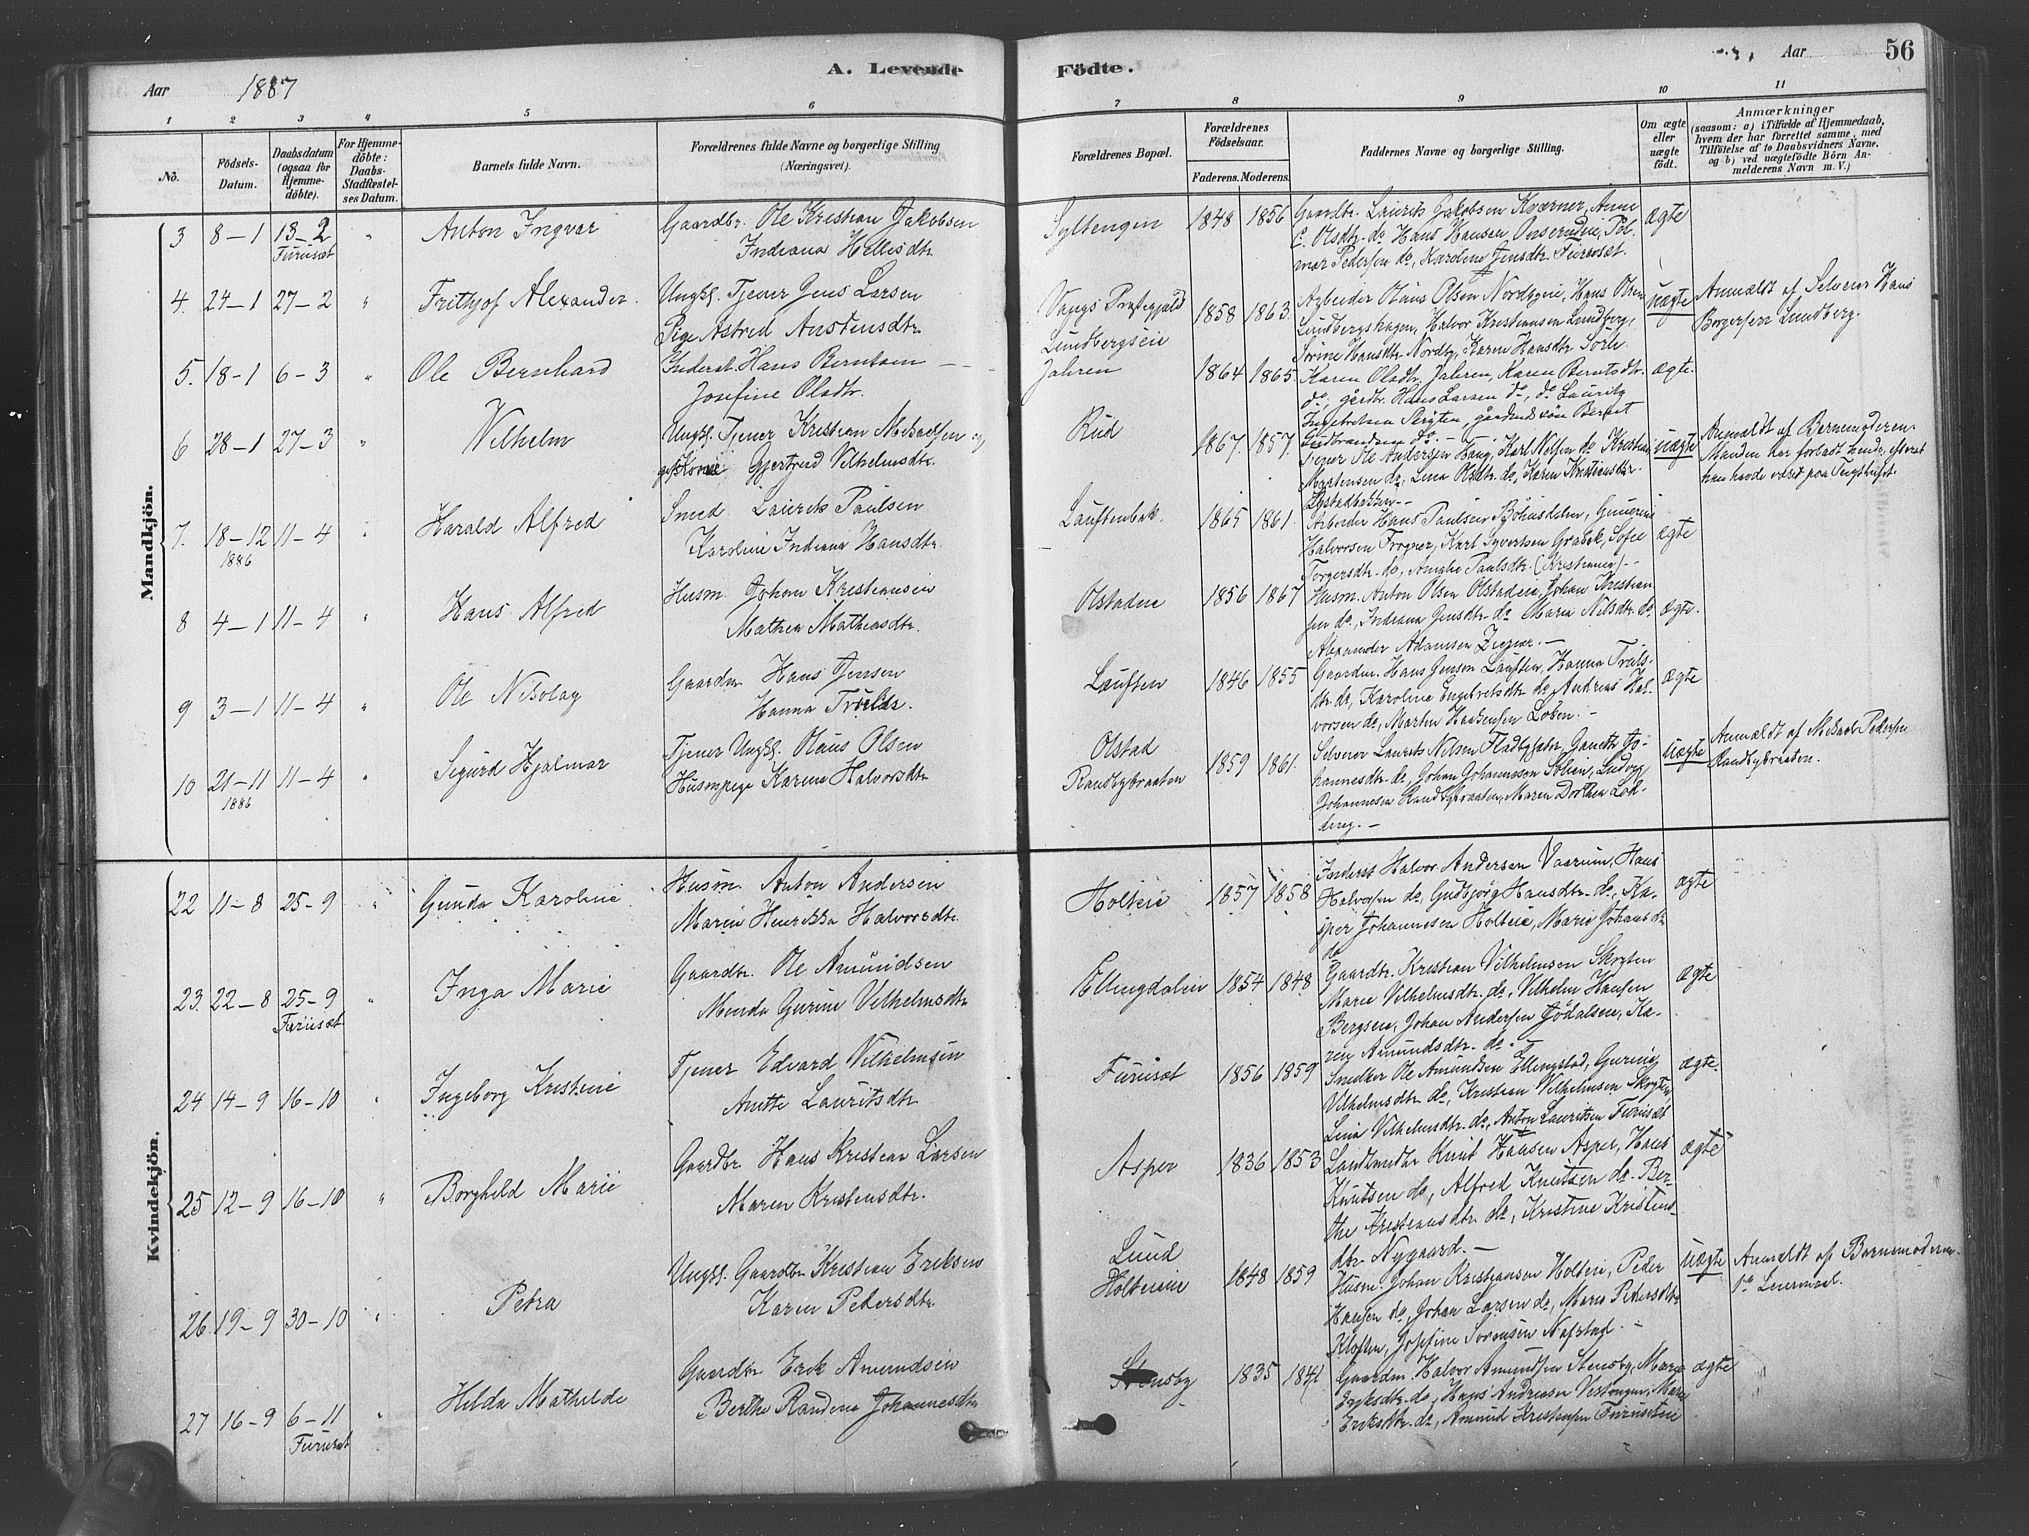 Aar 1887
A. Levende
Födte.
Aar
56
1 2 3 4 5 6 7 8 9 10 11
No.
Födsels-Datum.
Daabsdatum (ogsaa for Hjemme-döbte).
For Hjemme-döbte: Daabs-Stadfæstel-ses Datum.
Barnets fulde Navn.
Forældrenes fulde Navne og borgerlige Stilling (Næringsvei).
Forældrenes Bopæl.
Forældrenes Födselsaar.
Faderens. Moderens.
Faddernes Navne og borgerlige Stilling.
Om ægte eller uægte födt.
Anmærkninger
(saasom: a) i Tilfælde af Hjemmedaab, hvem der har forrettet samme, med Tilföielse af to Daabsvidners Navne, og b) ved uægtefödte Börn An-melderens Navn m. V.)
Mandkjön.
3 8-1 13-2 Furuset " Anton Ingvar
Gaardbr. Ole Kristian Jakobsen
Indiana Hellesdtr.
1848 1856
Gaardbr. Laurits Jakobsen Kværner, Anne
ægte
4. 24-1 27-2 " Frithjof Alexander.
Ungk. Tjener Jens Larsen
Pige Astrid Austensdtr.
Vangs Præstegjeld
Lundbergseie
1858 1863.
Arbeider Olaus Olsen Nordbyeie, Hans Olsen
Lundbergshagen, Halvor Kristiansen Lundberg,
Sörine Hansdtr. Nordby, Karen Hansdtr. Sörli
uægte
Anmeldt af Selveier Hans
Borgersen Lundberg.
5. 18-1 6-3 " Ole Bernhard
Inderst. Hans Berntsen
Josefine Olsdtr.
Jahren
1864 1865.
Karen Olsdtr. Jahren, Karen Berntsdtr.
do, gårdbr. Hans Larsen do, do Laurits
ægte.
6 28-1 27-3 " Vilhelm
Ungk. Tjener Kristian Mikaelsen og
Kone Gjertrud Vilhelmsdtr.
Rud
1867. 1857.
Tjener Ole Andersen Haug, Karl Nilsen do, Kristian
Martensen do, Lina Olsdtr. do, Karen Kristiansdtr.
uægte
Anmeldt af Barnemoderen.
Manden har forladt hende, efterat
han havde været paa Tugthuset.
7. 18-12 1886 11-4 " Harald Alfred
Smed. Laurits Paulsen
Karoline Indiana Hansdtr.
Lauftenbak.
1865 1861.
Halvorsen Frogner, Karl Syvertsen Grabek, Sofie
Torgersdtr. do, Amalie Paulsdtr. (Kristiania).-
ægte
8 4-1 11-4 " Hans Alfred
Husm. Johan Kristiansen
Mathea Mathiasdtr.
Olstadeie
1856 1867
Husm. Anton Olsen Olstadeie, Johan Kristian
sen do, Indiana Jensdtr. do Maria Nilsdtr. do
ægte.
9 3-1 11-4 " Ole Nikolay
Gaardm. Hans Jensen
Hanna Trulsdr.
Lauften
1846 1855
Gaardm. Hans Jensen Lauften, Hanna Truls-
dtr. do, Karoline Engebretsdtr. do, Andreas Hal-
ægte
10 21-11 1886 11-4 " Sigurd Hjalmar
Tjener Ungk. Olaus Olsen
Husmpige Karen Halvorsdtr.
Olstad
Randbybraaten
1859 1861.
Selveier Laurits Nilsen
hannesdtr. do, Johan Johannessen
Johannesen Randbybraaten, Maren Dorthea
uægte
Anmeldt af Mikael Pedersen
Randbybraaten.
Kvindekjön.
22 11-8 25-9 " Gunda Karoline
Husm. Anton Andersen
Maren Henrikka Halvorsdtr.
Holteie
1857 1858
Inderst Halvor Andersen Vaarum, Hans
Halvorsen do, Gudbjörg Hansdtr. do, Ka-
sper Johannesen Holteie, Marie Johansdtr
do
ægte
23. 22-8 25-9 Furuset " Inga Marie
Gaardbr. Ole Amundsen
Gurine Vilhelmsdtr
1854 1848
Gaardbr. Kristian Vilhelmsen Skryten
Marie Vilhelmsdtr. do, Vilhelm Hansen
Bergseie, Johan Andersen Jödalseie, Ka-
ren Amundsdtr. do.
ægte
24 14-9 16-10 " Ingeborg Kristine
Tjener Edvard Vilhelmsen
Anette Lauritsdtr.
Furuset
1856 1859
Snedker Ole Amundsen Ellingstad, Gurine
Vilhelmsdtr. do, Kristian Vilhelmsen Skryten
Lina Vilhelmsdtr. do, Anton Lauritsen Furuset
ægte.
25 12-9 16-10 " Borghild Marie
Gaardbr. Hans Kristian Larsen
Maren Kristensdtr.
Asper
1836 1853
Landhandler Knut Hansen Asper, Hans
Knutsen do, Alfred Knutsen do. Ber-
the Kristiansdtr. do, Kristine Kristens-
dtr. Nygaard.-
ægte
26 19-9 30-10 " Petra
Ungk. Gaardbr. Kristian Eriksen
Karen Pedersdtr.
Lund
Holteieie
1848 1859
Husm. Johan Kristiansen Holteie, Peder
Hansen do, Johan Larsen do, Maren Pedersdtr
Kloften, Josefine Sörensen Nafstad.-
uægte
Anmeldt af Barnemoderen.
Leiermaal.
27 16-9 6-11 Furuset " Hilda Mathilde
Gaardbr Erik Amundsen
Berthe Randine Johannesdtr.
Stensby
1835 1841
Gaardm. Halvor Amundsen Stensby, Marie
Eriksdtr. do, Hans Andreasen
Eriksdtr. do, Amund Kristensen Furuseteie
ægte